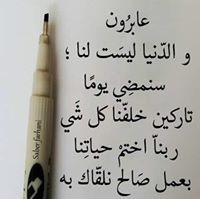 عابرُون
و الدّنيا ليسَت لنا ؛
سنمضِي يومًا
تاركين خلفّنا كل شَي
ربناّ اختمْ حياتِنا
بعمل صَالح نلقّاك به
Saber farhani